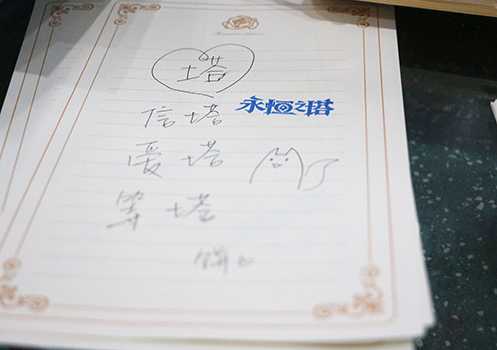 塔
信塔
永恒之塔
爱塔
等塔